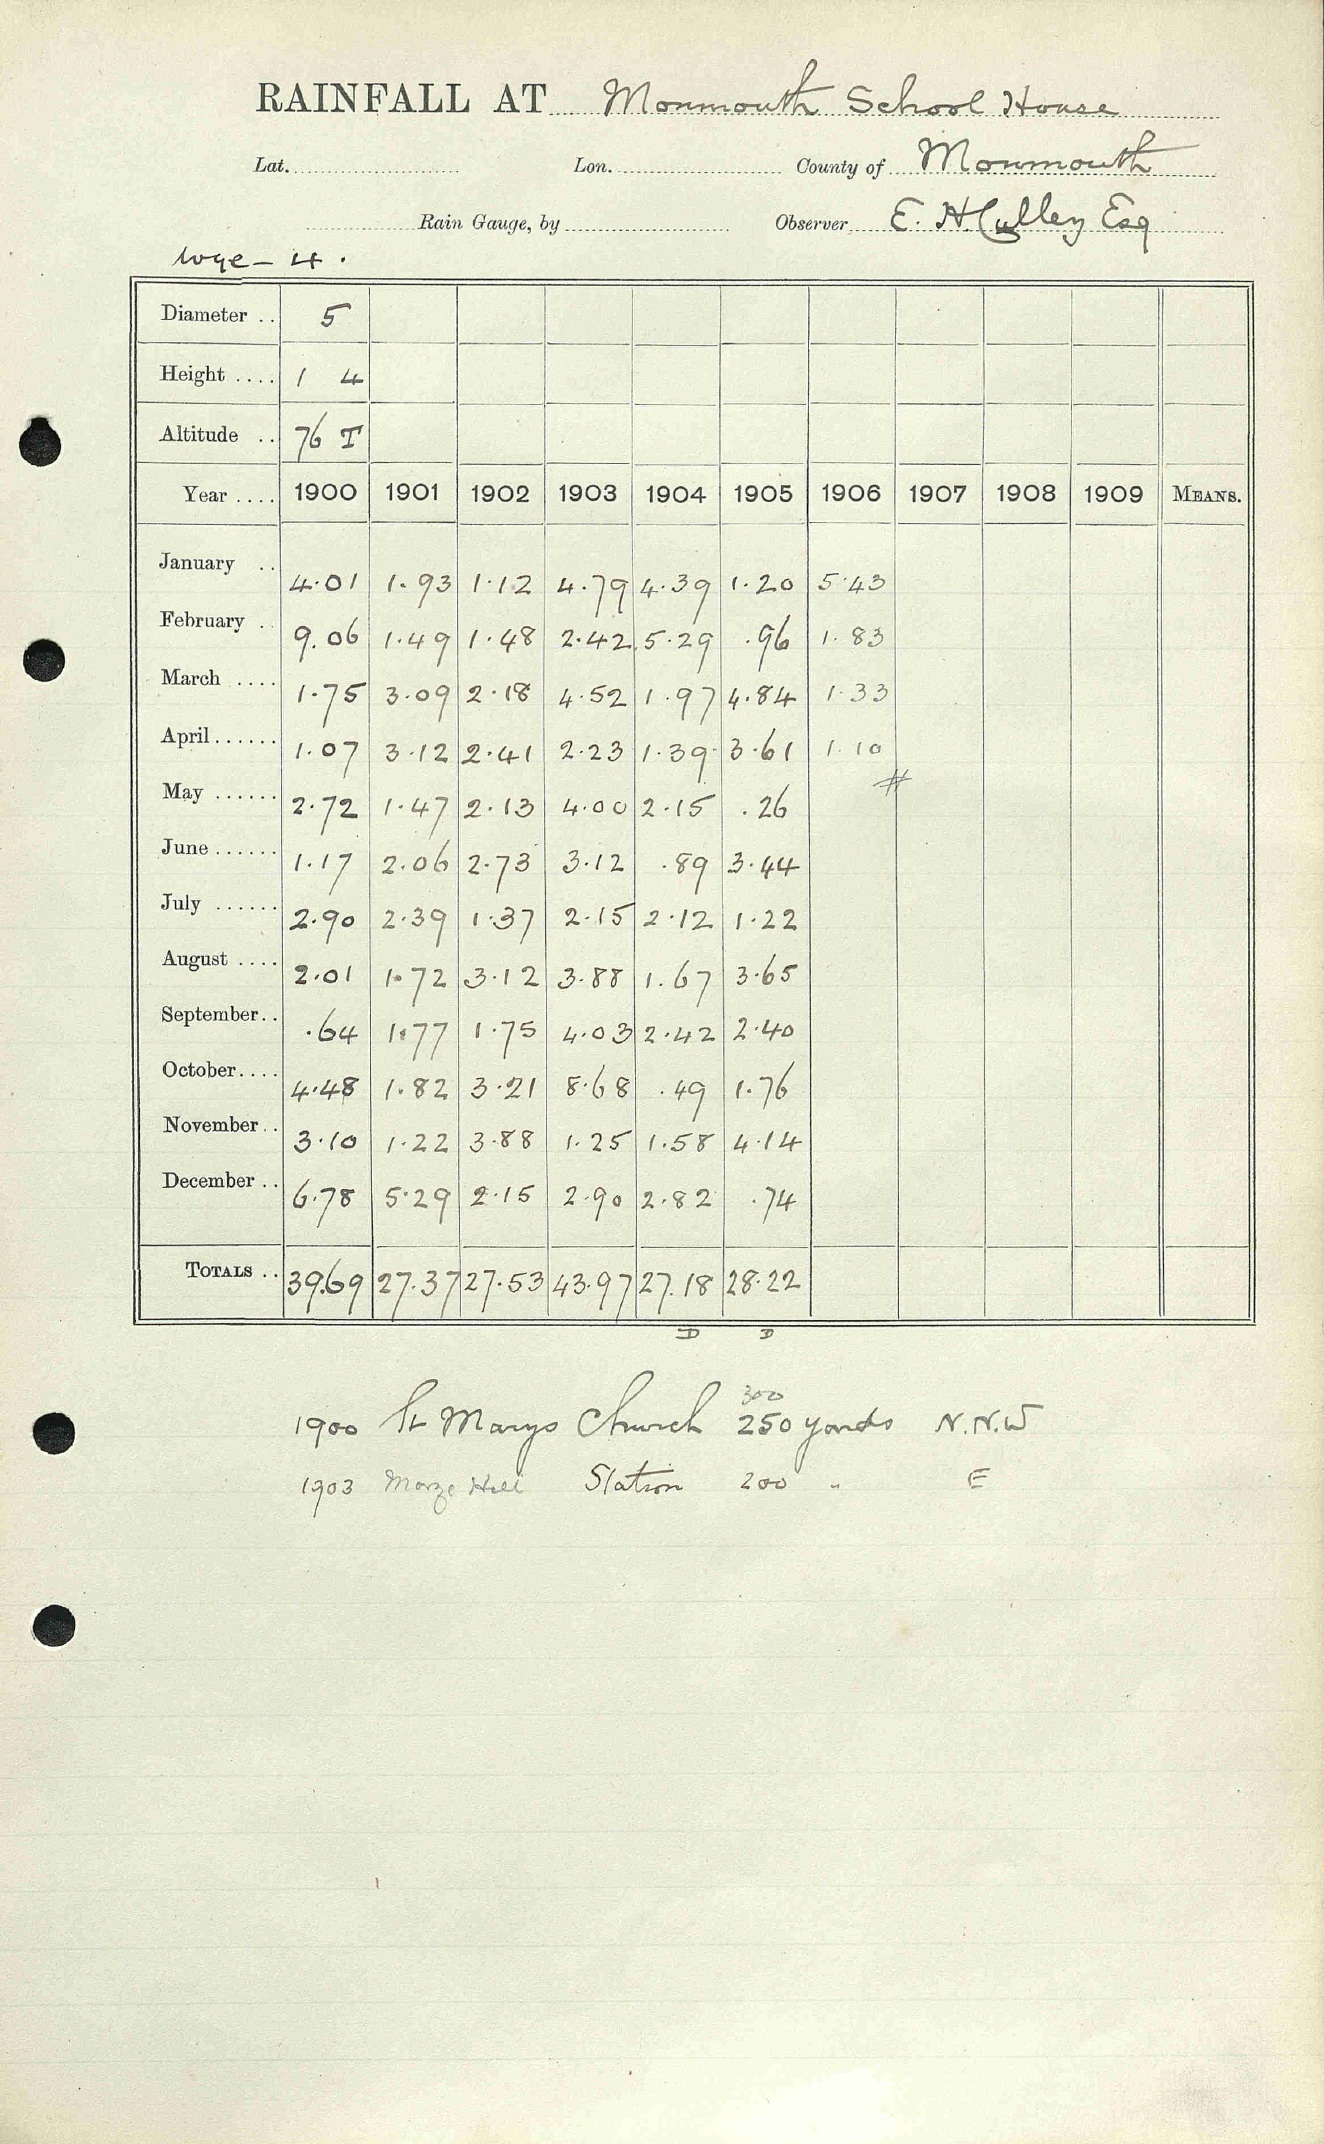 RAINFALL AT Monmouth School House
Lat. Lon. County of Monmouth
Rain Gauge, by Observer E. H. Culley Esq
Wye – 4.
Diameter .. 5
Height .... 1 4
Altitude .. 76 T
Year .... 1900 1901 1902 1903 1904 1905 1906 1907 1908 1909 MEANS.
January .. 4.01 1.93 1.12 4.79 4.39 1.20 5.43
February .. 9.06 1.49 1.48 2.42 5.29 .96 1.83
March .... 1.75 3.09 2.18 4.52 1.97 4.84 1.33
April...... 1.07 3.12 2.41 2.23 1.39 3.61 1.10
May ...... 2.72 1.47 2.13 4.00 2.15 .26 #
June...... 1.17 2.06 2.73 3.12 .89 3.44
July ...... 2.90 2.39 1.37 2.15 2.12 1.22
August .... 2.01 1.72 3.12 3.88 1.67 3.65
September.. .64 1.77 1.75 4.03 2.42 2.40
October.... 4.48 1.82 3.21 8.68 .49 1.76
November.. 3.10 1.22 3.88 1.25 1.58 4.14
December .. 6.78 5.29 2.15 2.90 2.82 .74
TOTALS .. 39.69 27.37 27.53 43.97 27.18 28.22
D D
300
1900 St Marys Church 250 yards N.N.W
1903 Hill Station 200 " E